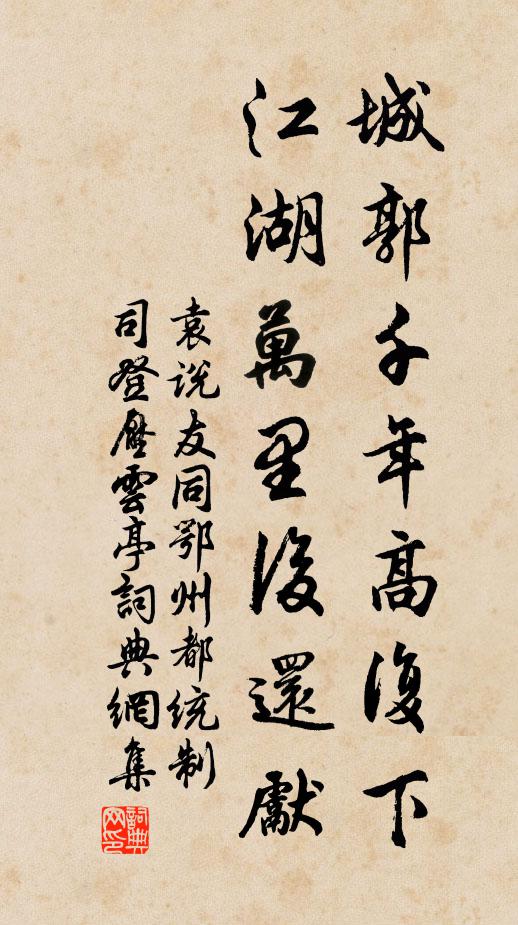 城郭千年高復下
江湖萬里後還獻
袁說友同鄂州都統制
司登壓雲亭詞典網集
詞典
网印